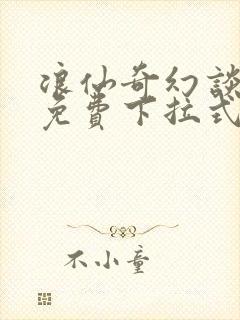 浪仙奇幻談
免費下拉式
不小童